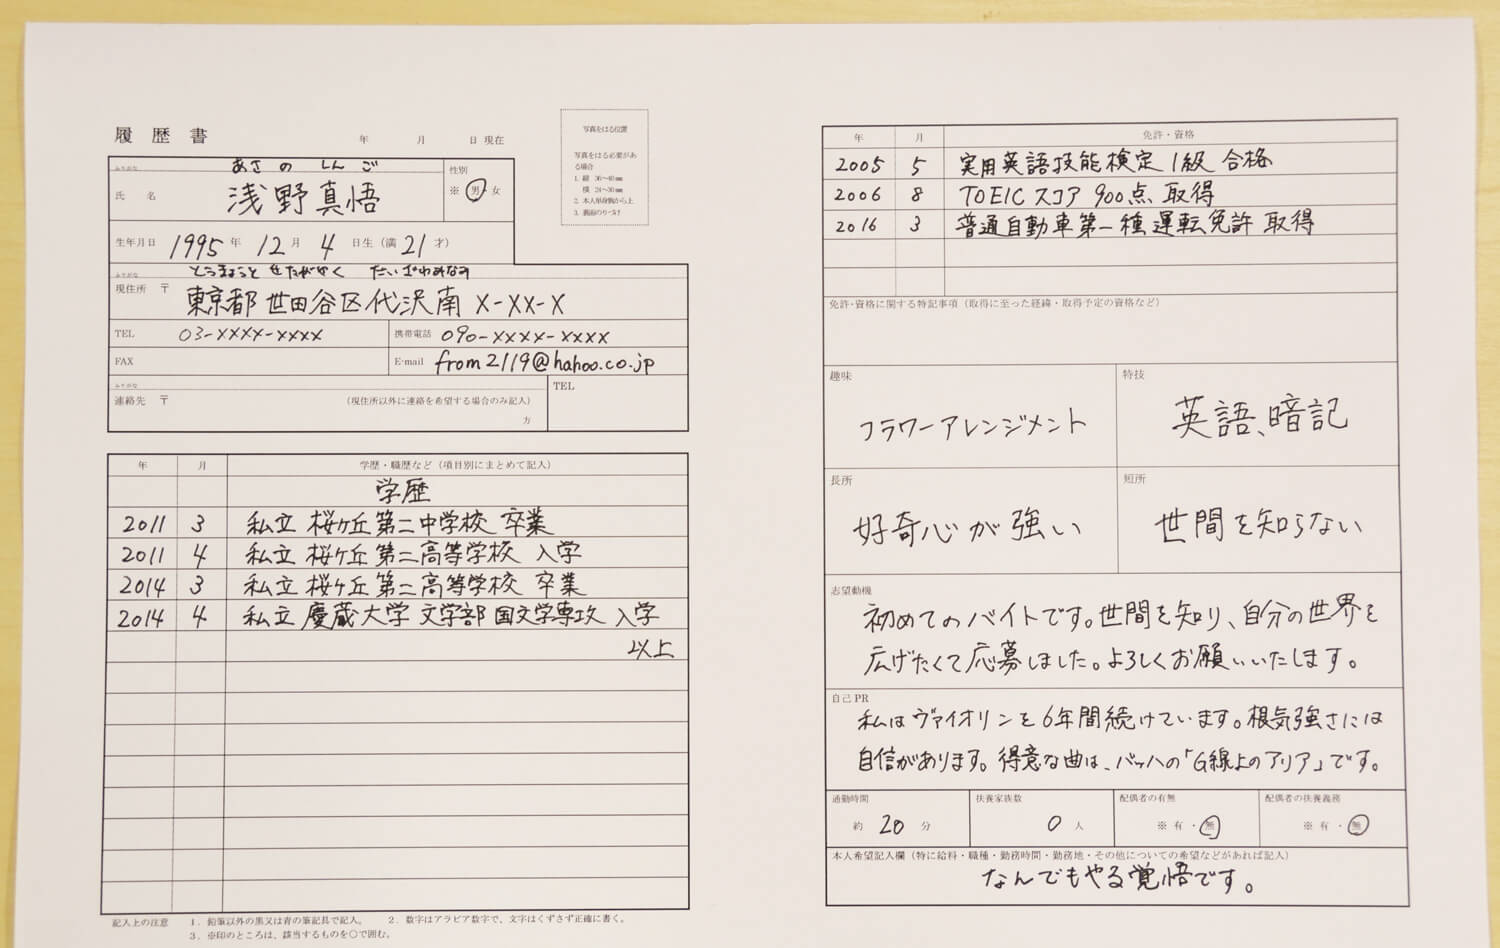 履歴書
年 月 日 現在
写真をはる位置
写真をはる必要があ
る場合
1. 縦 36～40mm
横 24～30mm
2. 本人単身胸から上
3. 裏面のりづけ
ふりがな あさの しんご
氏 名 浅野真悟
性別
※ 男・女
生年月日 1995 年 12 月 4 日生（満 21 才）
ふりがな とうきょうと せたがやく だいざわみなみ
現住所 〒 東京都世田谷区代沢南 X-XX-X
TEL 03-XXXX-XXXX 携帯電話 090-XXXX-XXXX
FAX E-mail from2119@hahoo.co.jp
ふりがな TEL
連絡先 〒 （現住所以外に連絡を希望する場合のみ記入）
方
年 月 学歴・職歴など（項目別にまとめて記入）
学歴
2011 3 私立 桜ヶ丘第二中学校 卒業
2011 4 私立 桜ヶ丘第二高等学校 入学
2014 3 私立 桜ヶ丘第二高等学校 卒業
2014 4 私立 慶蔵大学 文学部 国文学専攻 入学
以上
記入上の注意 1. 鉛筆以外の黒又は青の筆記具で記入。 2. 数字はアラビア数字で、文字はくずさず正確に書く。
3. ※印のところは、該当するものを○で囲む。
年 月 免許・資格
2005 5 実用英語技能検定1級 合格
2006 8 TOEICスコア 900点 取得
2016 3 普通自動車第一種運転免許 取得
免許・資格に関する特記事項（取得に至った経緯・取得予定の資格など）
趣味 特技
フラワーアレンジメント 英語、暗記
長所 短所
好奇心が強い 世間を知らない
志望動機
初めてのバイトです。世間を知り、自分の世界を
広げたくて応募しました。よろしくお願いいたします。
自己PR
私はヴァイオリンを6年間続けています。根気強さには
自信があります。得意な曲は、バッハの「G線上のアリア」です。
通勤時間 扶養家族数 配偶者の有無 配偶者の扶養義務
約 20 分 0 人 ※ 有・無 ※ 有・無
本人希望記入欄（特に給料・職種・勤務時間・勤務地・その他についての希望などがあれば記入）
なんでもやる覚悟です。